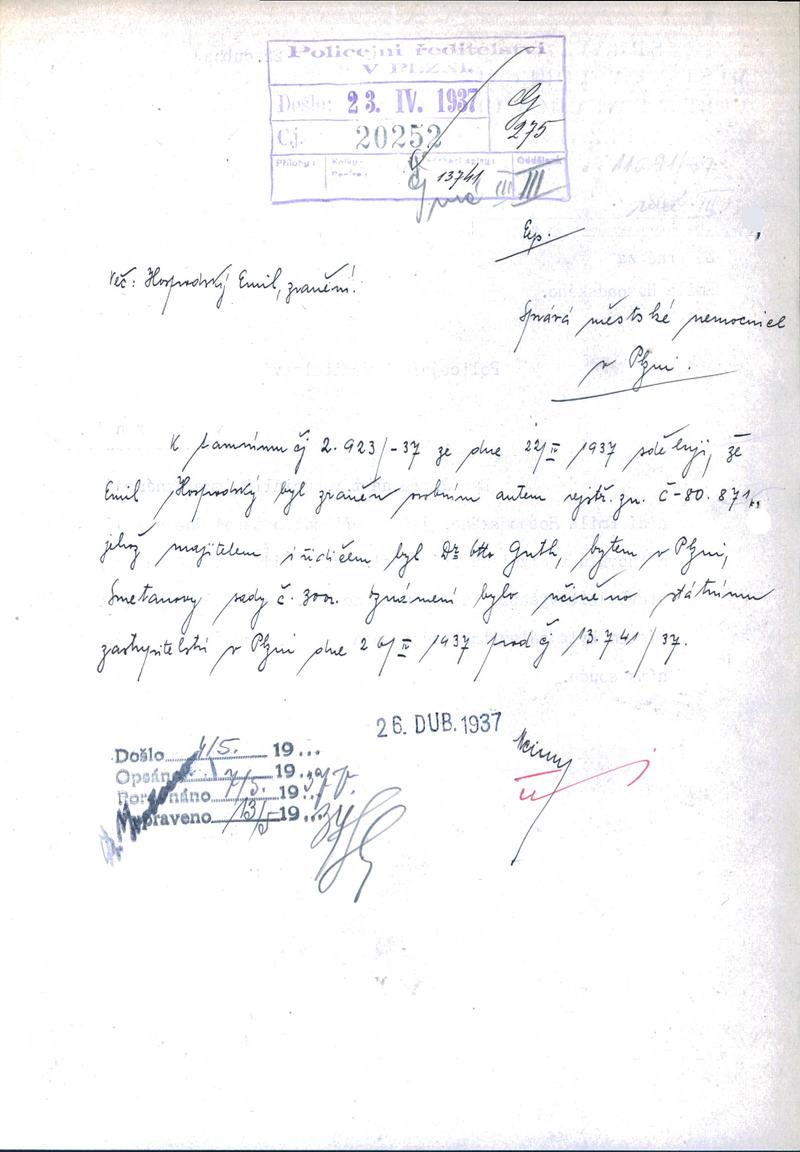 Policejní ředitelství
V PLZNI.
Došlo: 23. IV. 1937
Čj. 20252
275
Přílohy: Oddělení
13741 III III
Exp.
Věc: Hospodský Emil, zranění.
Správa městské nemocnice
v Plzni.
K tamnímu čj 2.923/-37 ze dne 22/IV 1937 sděluji, že
Emil Hospodský byl zraněn osobním autem rejstř. zn. Č-80.871,
jehož majitelem i řidičem byl Dr Otto Guth, bytem v Plzni,
Smetanovy sady č. 300. Oznámení bylo učiněno státnímu
zastupitelství v Plzni dne 26/IV 1937 pod čj 13.741/37.
26. DUB. 1937
Došlo 4/5. 19...
Opsáno 19...
Porovnáno 7/5. 19...37
Vypraveno 13/5 19...